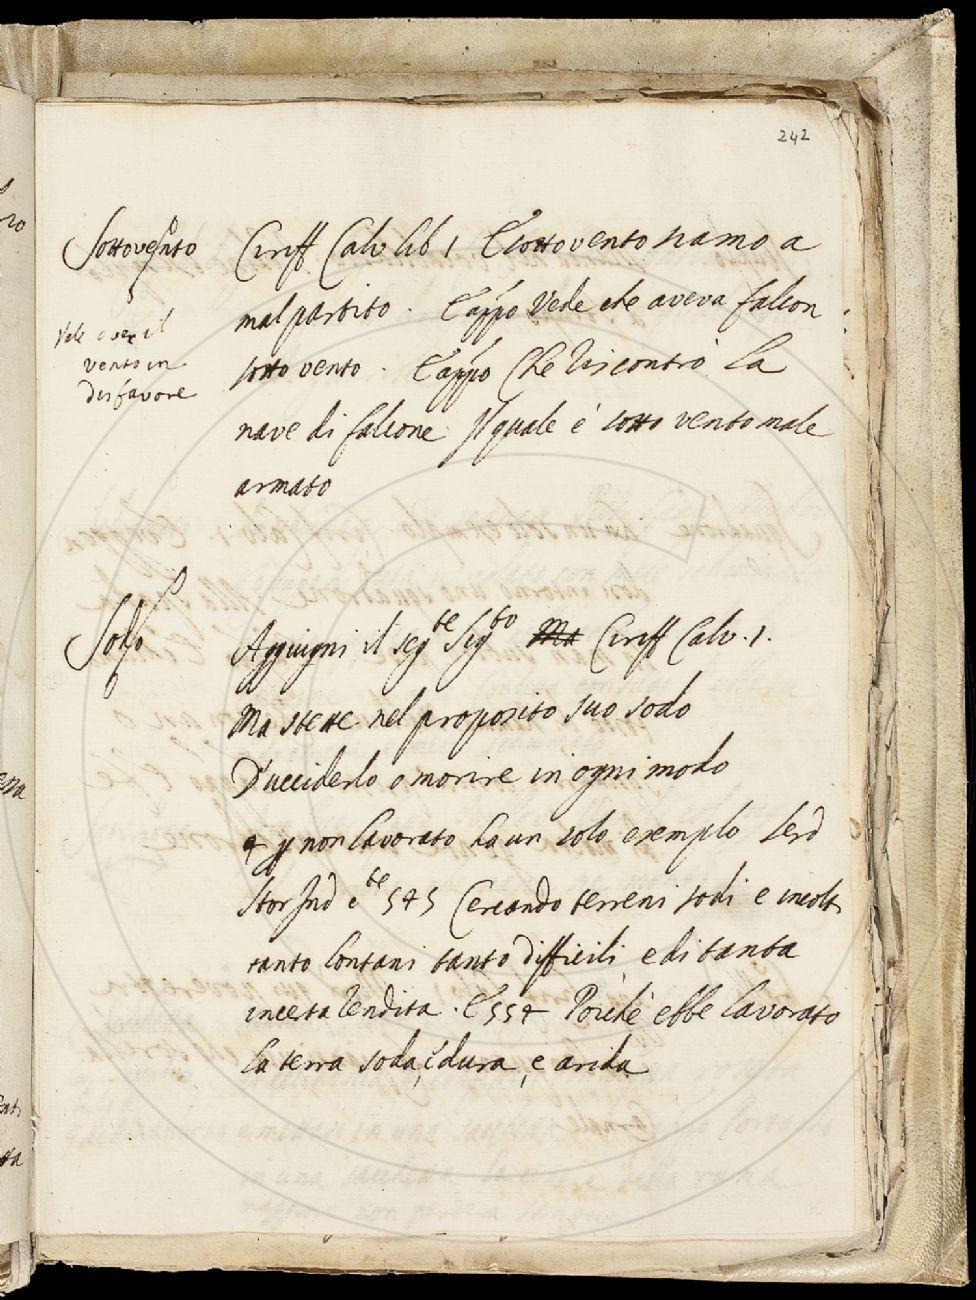 242
Sottovento
Ciriff Calv lib 1 E sottovento siamo a
mal partito . E appo Vede che aveva falcon
sotto vento . E appo Che riscontrò la
nave di falcone Il quale è sotto vento male
armato
Vale aver il
vento in
disfavore
Sodo
Aggiugni il segte Sigto Ma Ciriff Calv. 1.
Ma stette nel proposito suo sodo
D'ucciderlo o morire in ogni modo
non lavorato ha un solo exemplo Serd
Stor Ind cte 545 Cercando terreni sodi e incolt
tanto lontani tanto difficili, e di tanta
incerta rendita . E 554 Poichè ebbe lavorato
la terra soda, e dura, e arida